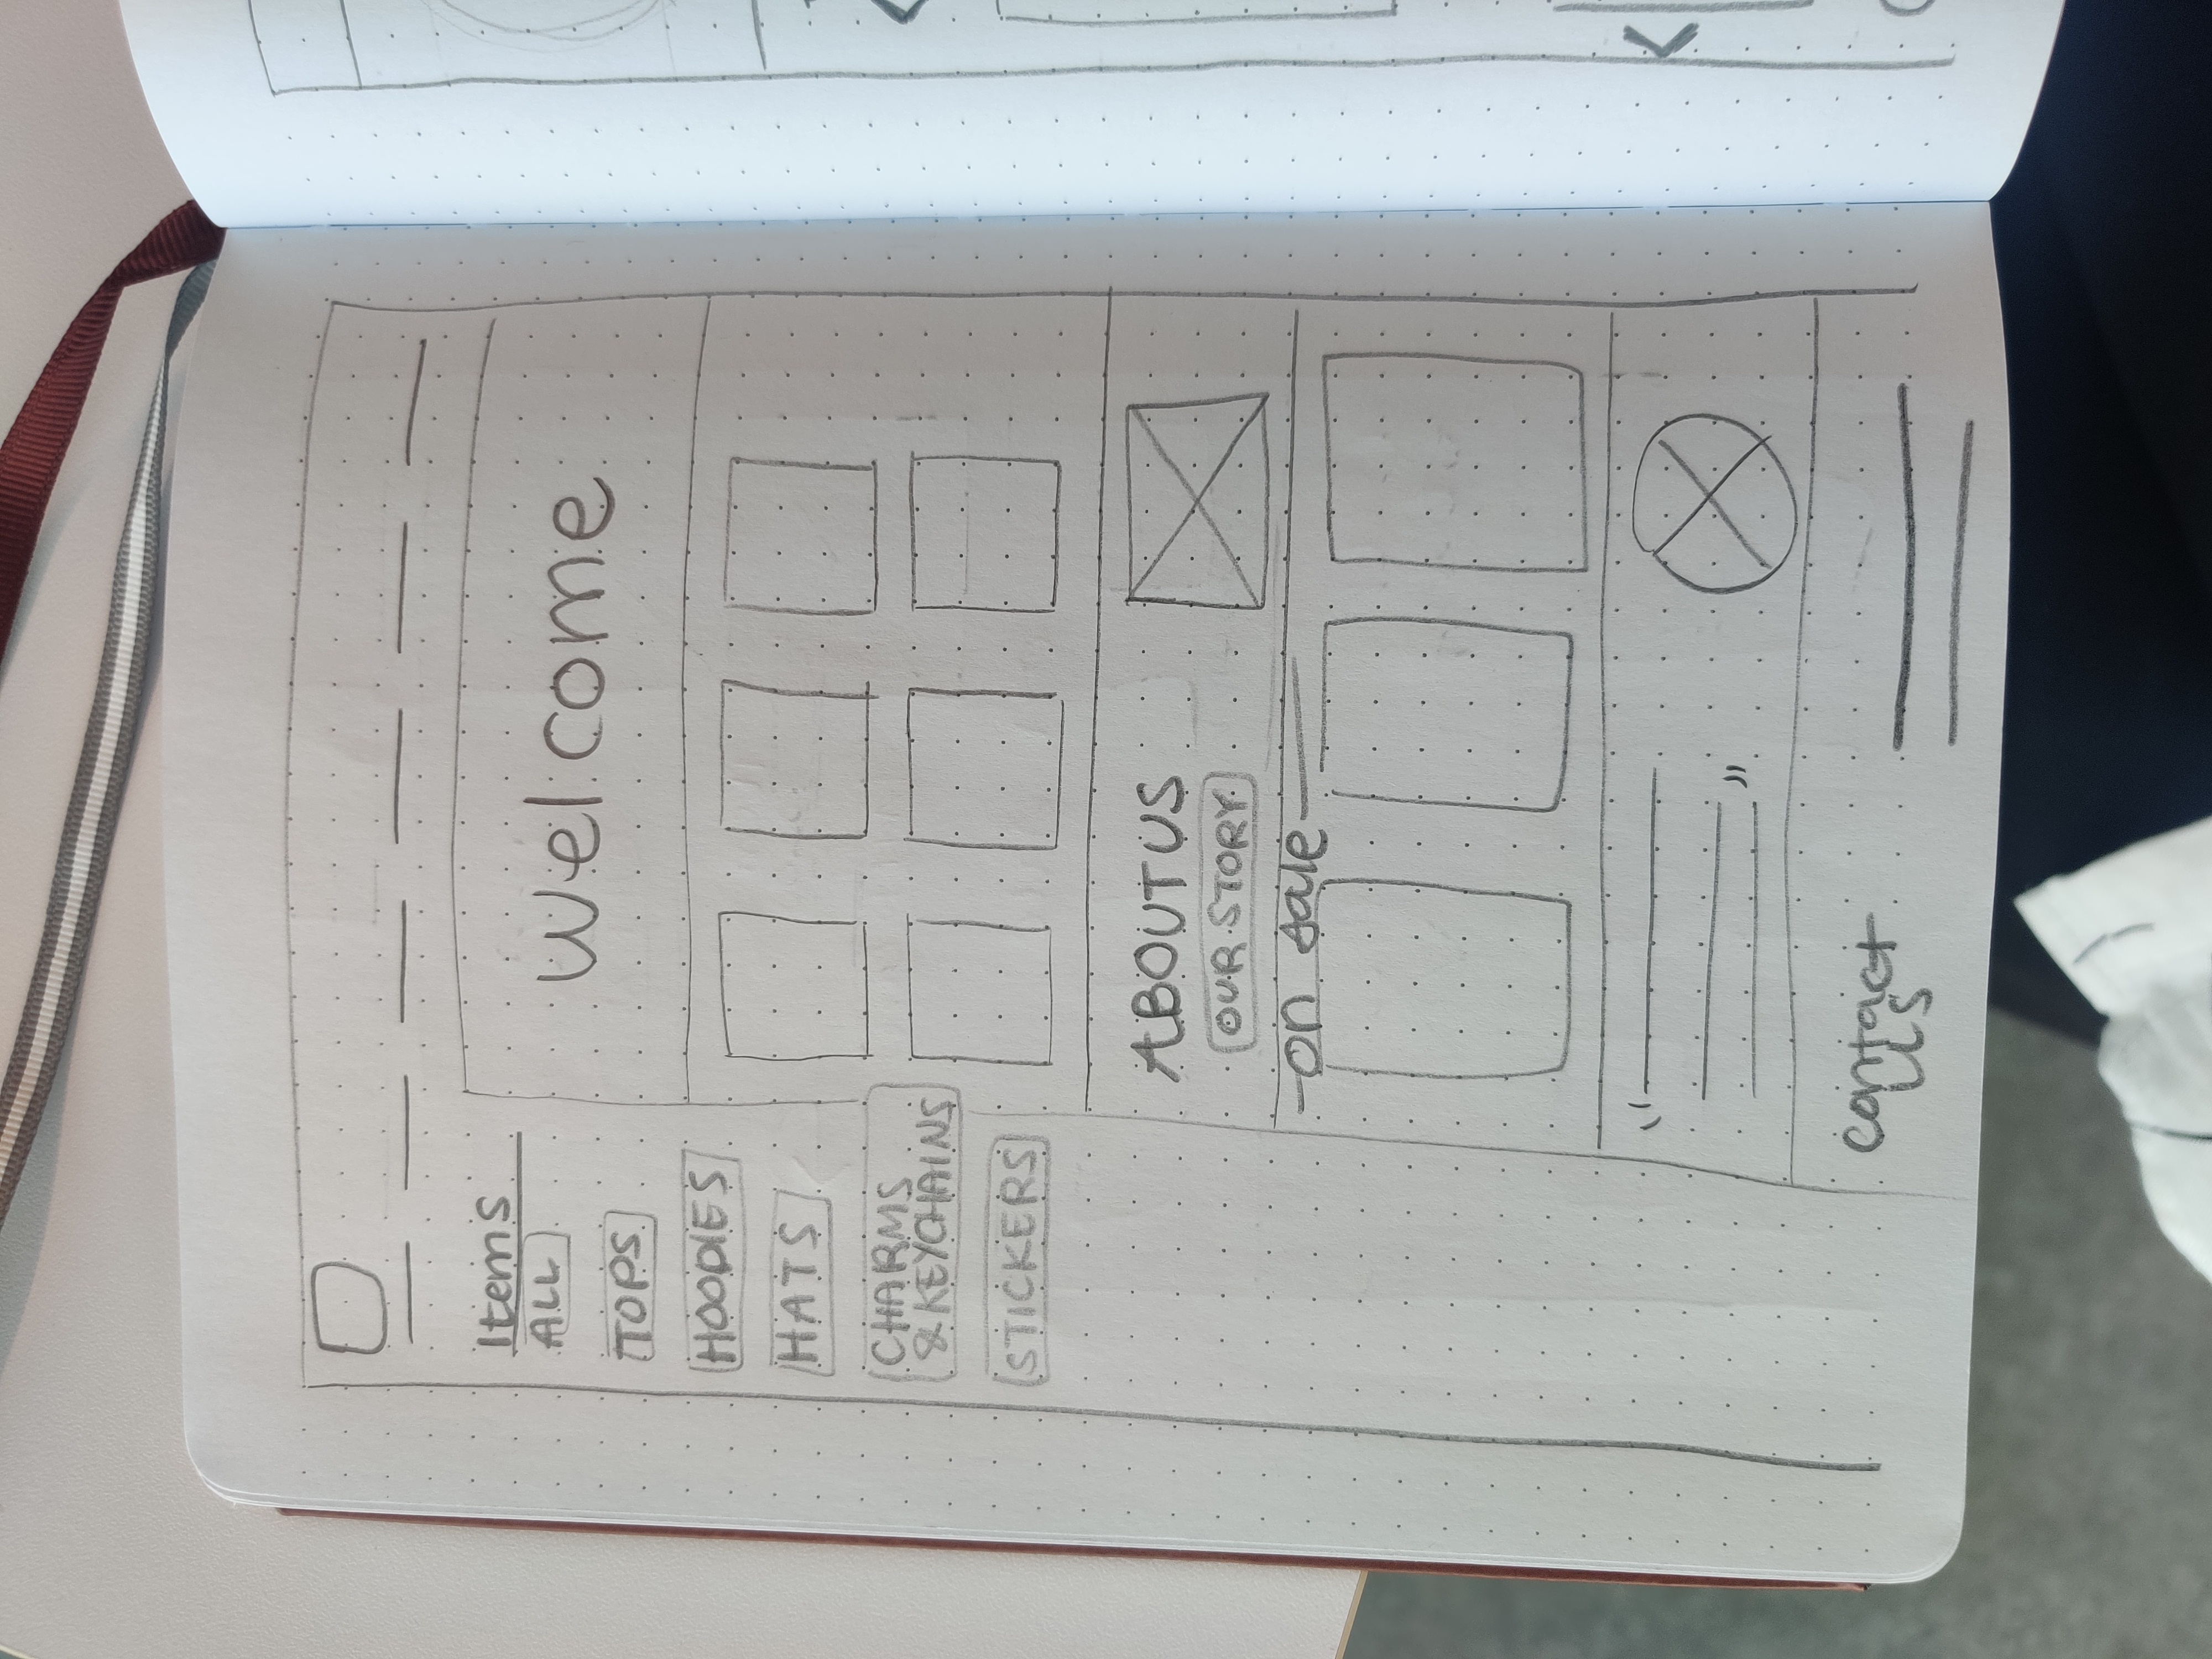 Items
ALL
TOPS
HOODIES
HATS
CHARMS
& KEYCHAINS
STICKERS
Welcome
ABOUT US
OUR STORY
on sale
"
"
contact
us